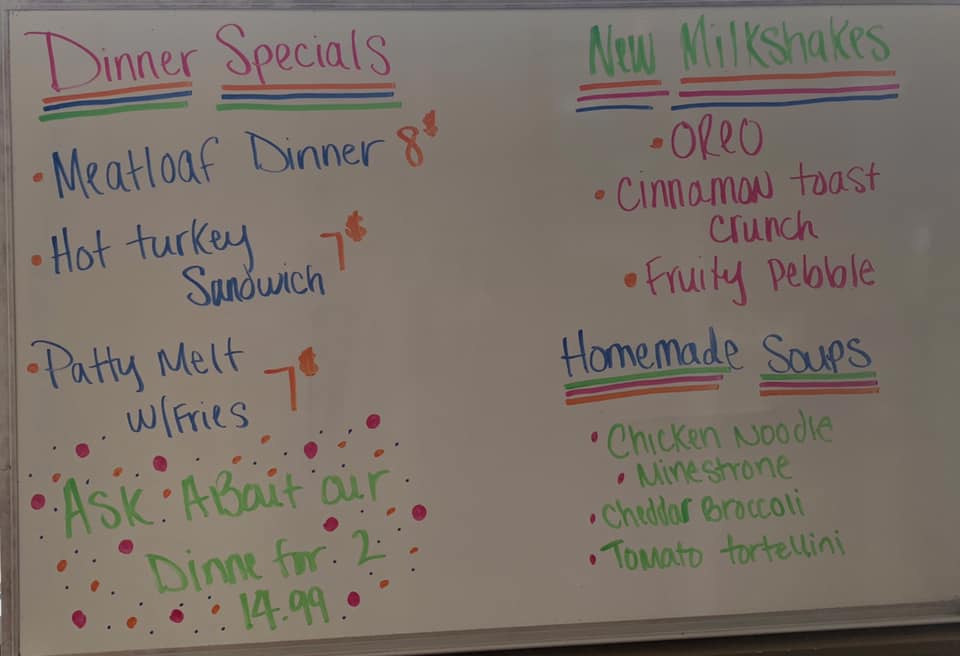 Dinner Specials
• Meatloaf Dinner 8$
• Hot turkey
Sandwich 7$
• Patty Melt
W/Fries 7$
Ask About our
Dinne for 2
14.99
New Milkshakes
• OREO
• Cinnamon toast
crunch
• Fruity Pebble
Homemade Soups
• Chicken Noodle
• Minestrone
• Cheddar Broccoli
• Tomato tortellini